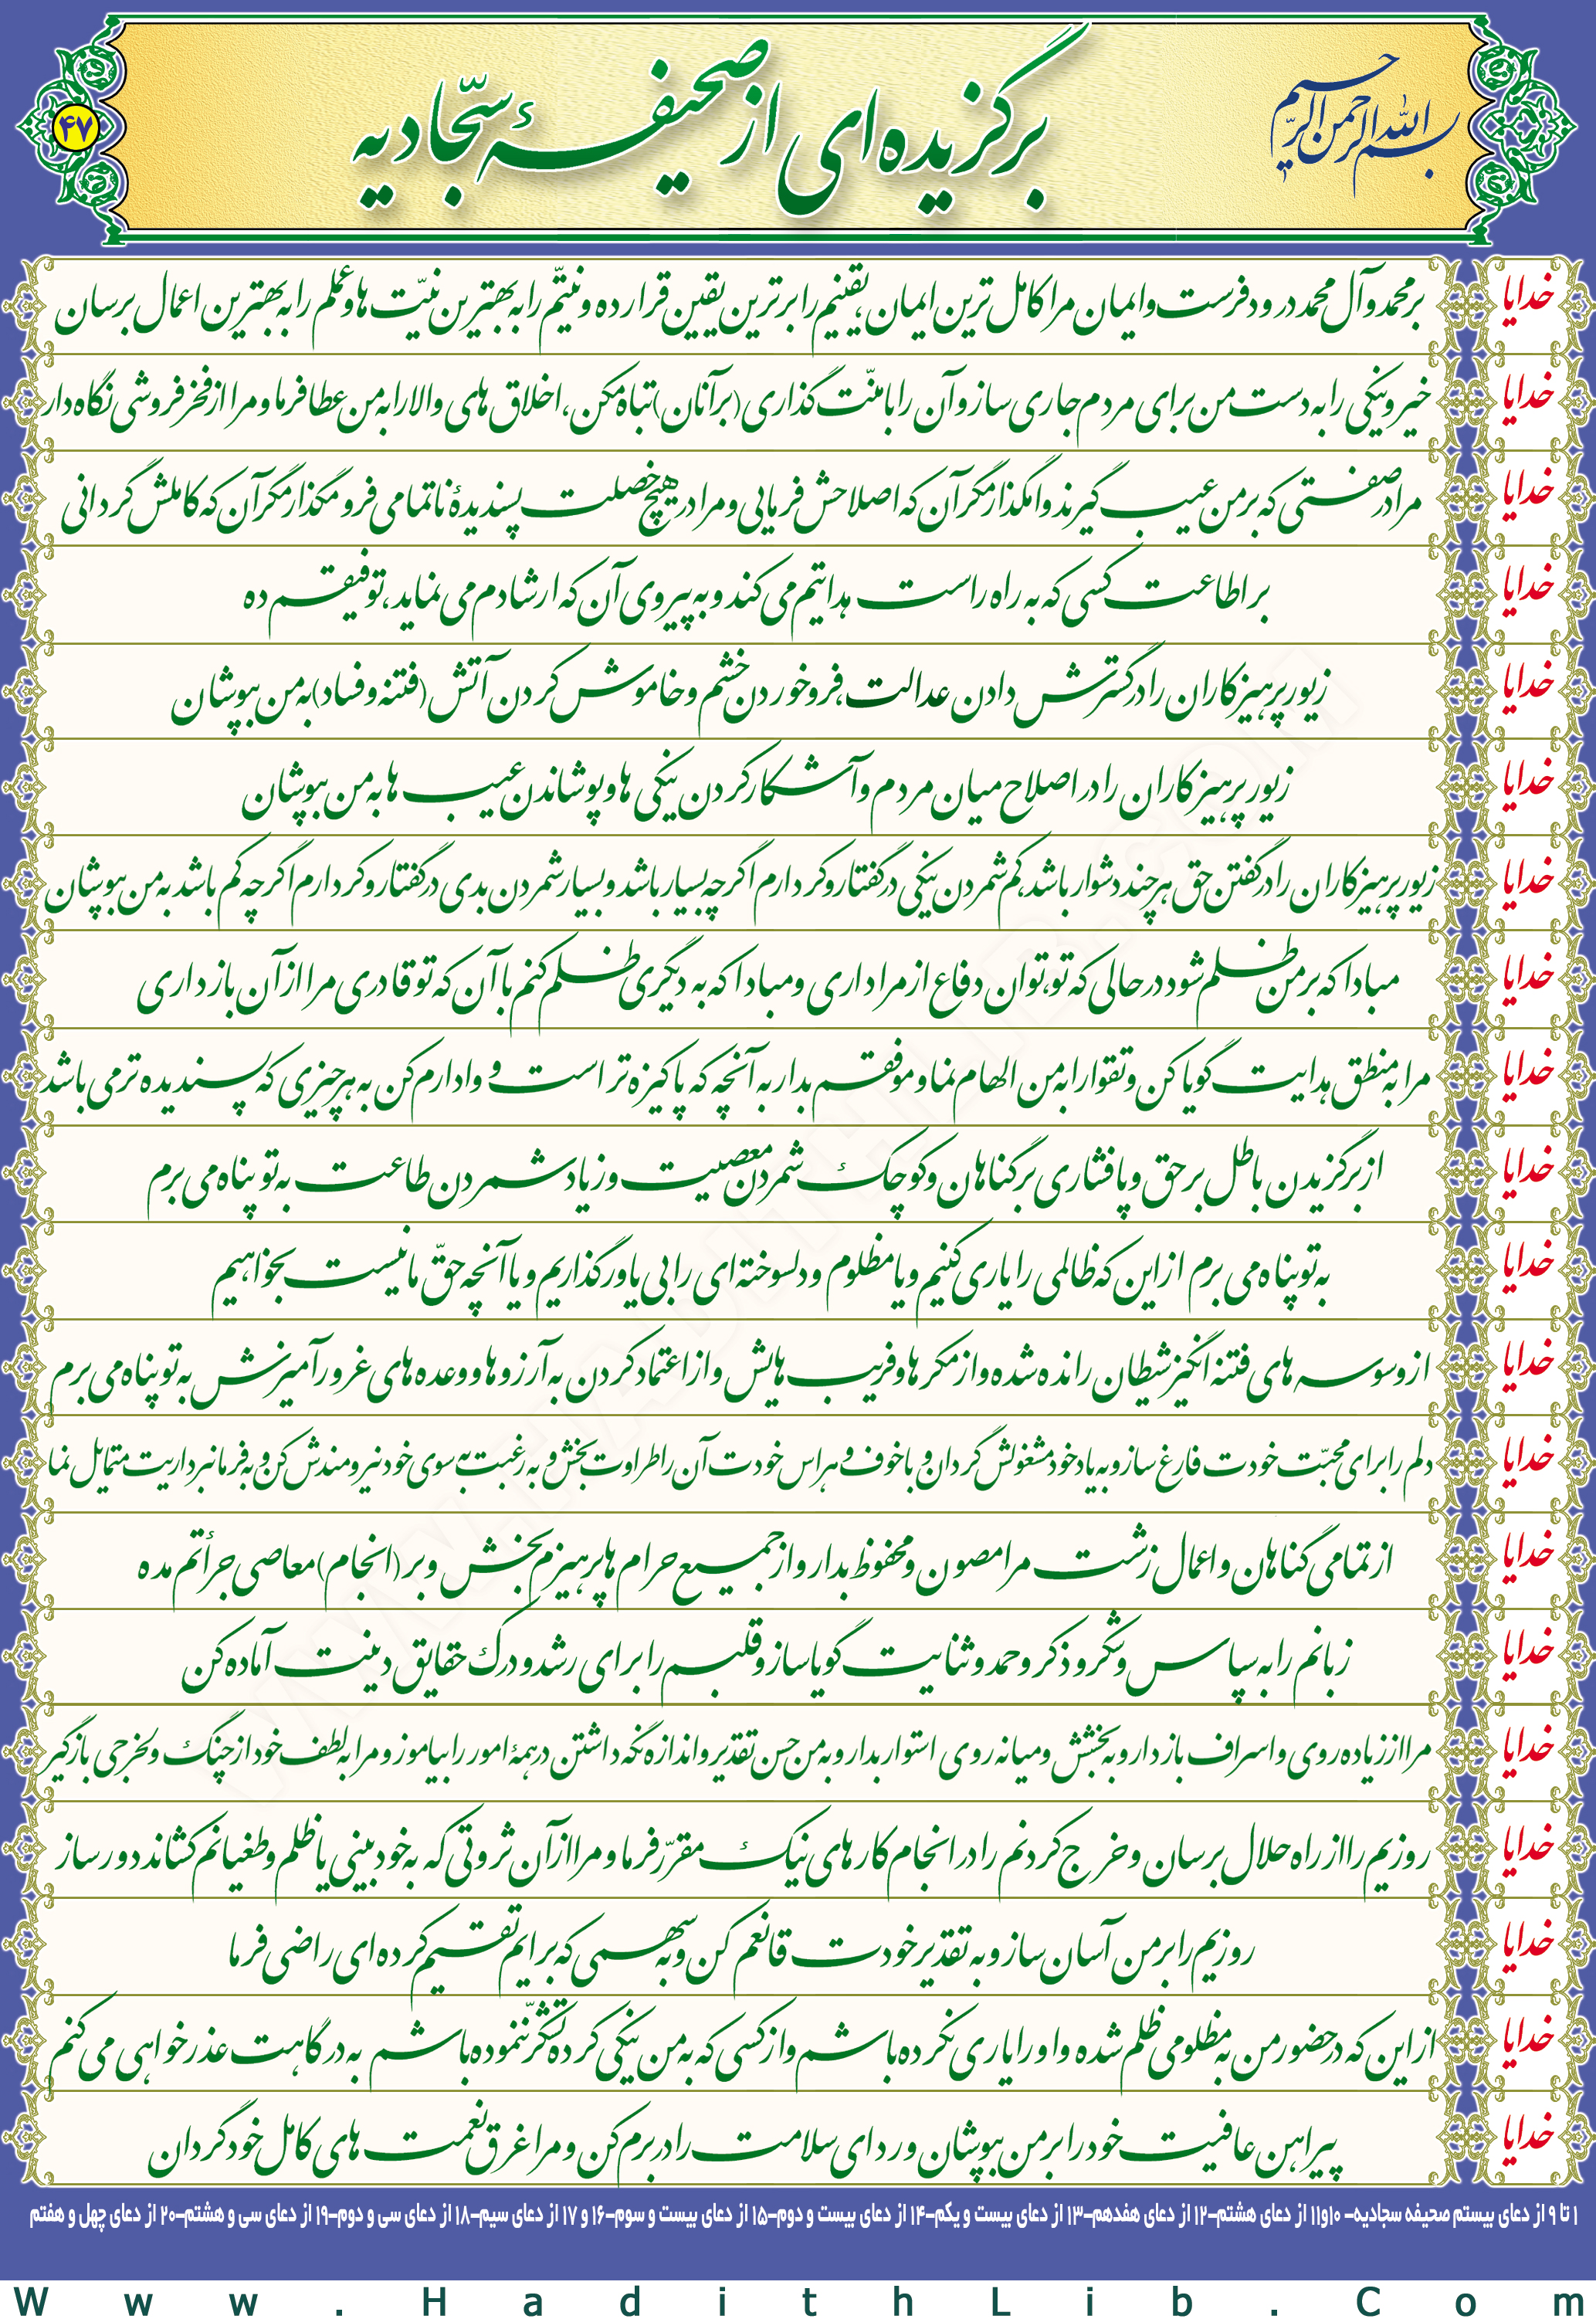 بسم الله الرحمن الرحیم
برگزیده ای از صحیفهٔ سجّادیه
۴۷
خدایا بر محمد و آل محمد درود فرست و ایمان مرا کامل ترین ایمان، یقینم را برترین یقین قرار ده و نیتّم را به بهترین نیّت ها و عملم را به بهترین اعمال برسان
خدایا خیر و نیکی را به دست من برای مردم جاری ساز و آن را با منّت گذاری (بر آنان) تباه مکن، اخلاق های والا را به من عطا فرما و مرا از فخر فروشی نگاه دار
خدایا مرا در صفتی که بر من عیب گیرند وامگذار مگر آن که اصلاحش فرمایی و مرا در هیچ خصلت پسندیدهٔ ناتمامی فرو مگذار مگر آن که کاملش گردانی
خدایا بر اطاعت کسی که به راه راست هدایتم می کند و به پیروی آن که ارشادم می نماید، توفیقم ده
خدایا زیور پرهیزکاران را در گسترش دادن عدالت، فرو خوردن خشم و خاموش کردن آتش (فتنه و فساد) به من بپوشان
خدایا زیور پرهیزکاران را در اصلاح میان مردم و آشکار کردن نیکی ها و پوشاندن عیب ها به من بپوشان
خدایا زیور پرهیزکاران را در گفتن حق هر چند دشوار باشد، کم شمردن نیکی در گفتار و کردارم اگر چه بسیار باشد و بسیار شمردن بدی در گفتار و کردارم اگر چه کم باشد به من بپوشان
خدایا مبادا که بر من ظلم شود در حالی که تو، توان دفاع از مرا داری و مبادا که به دیگری ظلم کنم با آن که تو قادری مرا از آن باز داری
خدایا مرا به منطق هدایت گویا کن و تقوا را به من الهام نما و موفقم بدار به آنچه که پاکیزه تر است و وادارم کن به هر چیزی که پسندیده تر می باشد
خدایا از برگزیدن باطل بر حق و پافشاری بر گناهان و کوچک شمردن معصیت و زیاد شمردن طاعت به تو پناه می برم
خدایا به تو پناه می برم از این که ظالمی را یاری کنیم و یا مظلوم و دلسوخته ای را بی یاور گذاریم و یا آنچه حقّ ما نیست بخواهیم
خدایا از وسوسه های فتنه انگیز شیطان رانده شده و از مکر ها و فریب هایش و از اعتماد کردن به آرزوها و وعده های غرورآمیزش به تو پناه می برم
خدایا دلم را برای محبّت خودت فارغ ساز و به یاد خود مشغولش گردان و با خوف و هراس خودت آن را طراوت بخش و به رغبت به سوی خود نیرومندش کن و به فرمانبرداریت متمایل نما
خدایا از تمامی گناهان و اعمال زشت مرا مصون و محفوظ بدار و از جمیع حرام ها پرهیزم بخش و بر (انجام) معاصی جرأتم مده
خدایا زبانم را به سپاس و شکر و ذکر و حمد و ثنایت گویا ساز و قلبم را برای رشد و درک حقایق دینت آماده کن
خدایا مرا از زیاده روی و اسراف باز دار و به بخشش و میانه روی استوار بدار و به من حسن تقدیر و اندازه نگه داشتن در همهٔ امور را بیاموز و مرا به لطف خود از چنگ ولخرجی بازگیر
خدایا روزیم را از راه حلال برسان و خرج کردنم را در انجام کارهای نیک مقرّر فرما و مرا از آن ثروتی که به خود بینی یا ظلم و طغیانم کشاند دور ساز
خدایا روزیم را بر من آسان ساز و به تقدیر خودت قانعم کن و به سهمی که برایم تقسیم کرده ای راضی فرما
خدایا از این که در حضور من به مظلومی ظلم شده و او را یاری نکرده باشم و از کسی که به من نیکی کرده تشکّر ننموده باشم به درگاهت عذر خواهی می کنم
خدایا پیراهن عافیت خود را بر من بپوشان و ردای سلامت را در برم کن و مرا غرق نعمت های کامل خود گردان
۱ تا ۹ از دعای بیستم صحیفه سجادیه- ۱۰و۱۱ از دعای هشتم-۱۲ از دعای هفدهم-۱۳ از دعای بیست و یکم-۱۴ از دعای بیست و دوم-۱۵ از دعای بیست و سوم-۱۶ و ۱۷ از دعای سیم-۱۸ از دعای سی و دوم-۱۹ از دعای سی و هشتم-۲۰ از دعای چهل و هفتم
Www.HadithLib.Com